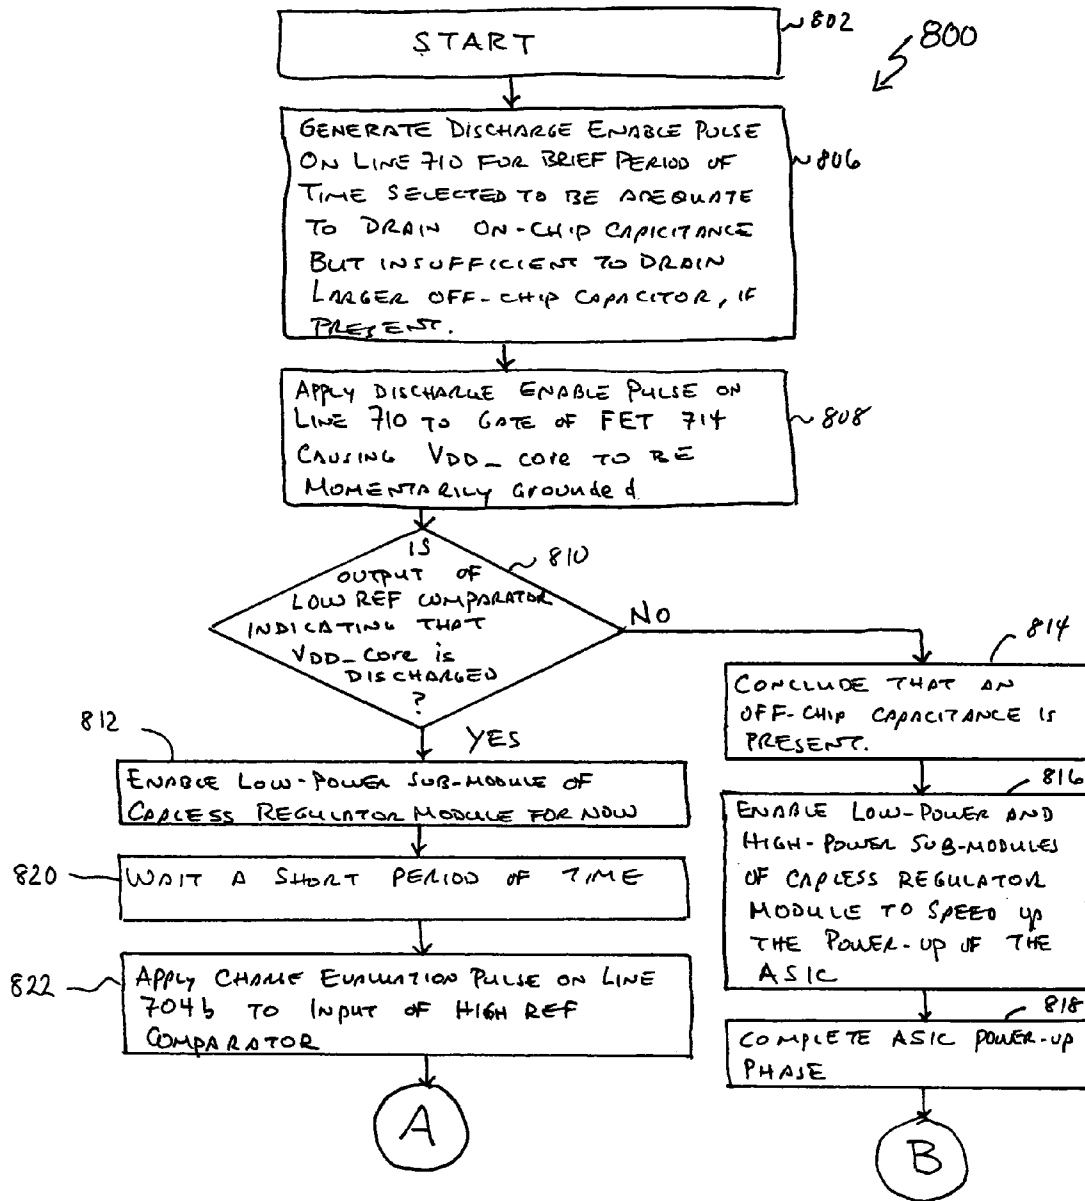 START
802
800
GENERATE DISCHARGE ENABLE PULSE
ON LINE 710 FOR BRIEF PERIOD OF
TIME SELECTED TO BE ADEQUATE
TO DRAIN ON-CHIP CAPICITANCE
BUT INSUFFICIENT TO DRAIN
LARGER OFF-CHIP CAPACITOR, IF
PRESENT.
806
APPLY DISCHARGE ENABLE PULSE ON
LINE 710 TO GATE OF FET 714
CAUSING VDD_core TO BE
MOMENTARILY Grounded
808
IS
OUTPUT OF
LOW REF COMPARATOR
INDICATING THAT
VDD_Core is
DISCHARGED
?
810
NO
YES
812
ENABLE LOW-POWER SUB-MODULE OF
CAPLESS REGULATOR MODULE FOR NOW
820
WAIT A SHORT PERIOD OF TIME
822
APPLY CHARGE EVALUATION PULSE ON LINE
704b TO INPUT OF HIGH REF
COMPARATOR
A
814
CONCLUDE THAT AN
OFF-CHIP CAPACITANCE IS
PRESENT.
816
ENABLE LOW-POWER AND
HIGH-POWER SUB-MODULES
OF CAPLESS REGULATOR
MODULE TO SPEED UP
THE POWER-UP OF THE
ASIC
818
COMPLETE ASIC POWER-UP
PHASE
B